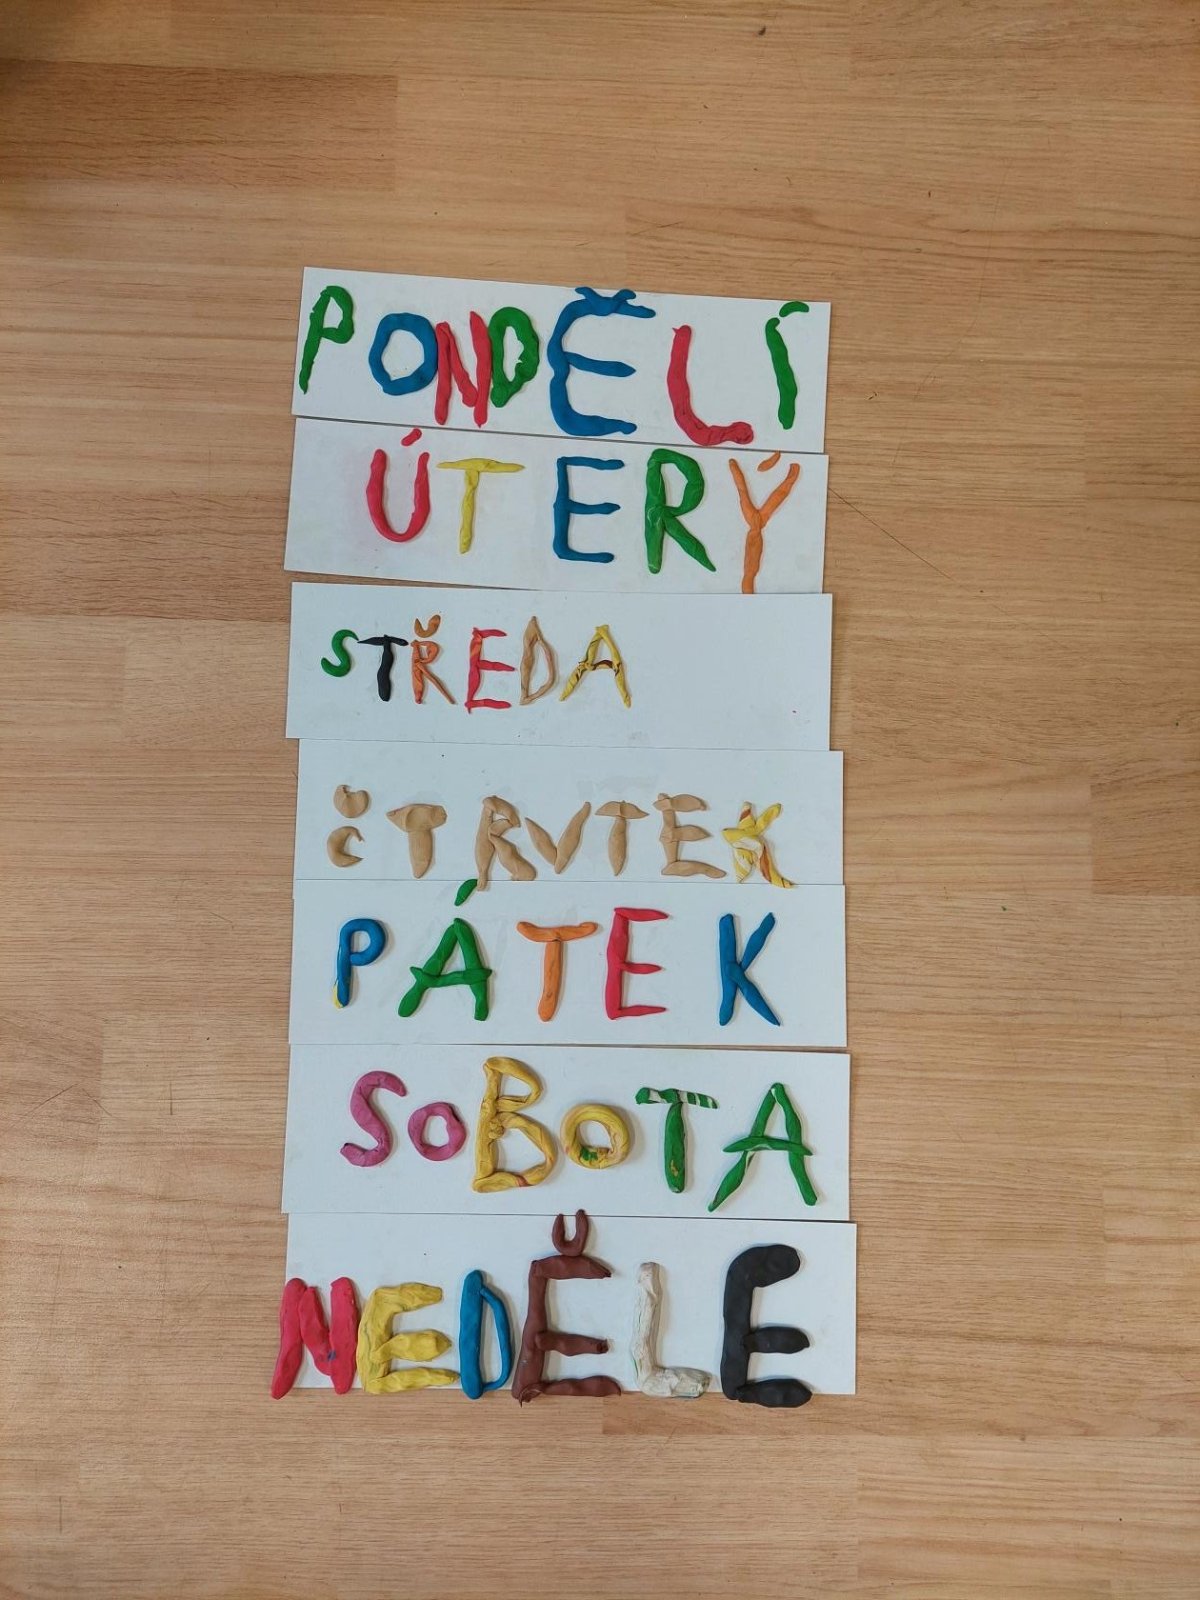 PONDĚLÍ
ÚTERÝ
STŘEDA
ČTRVTEK
PÁTEK
SOBOTA
NEDĚLE